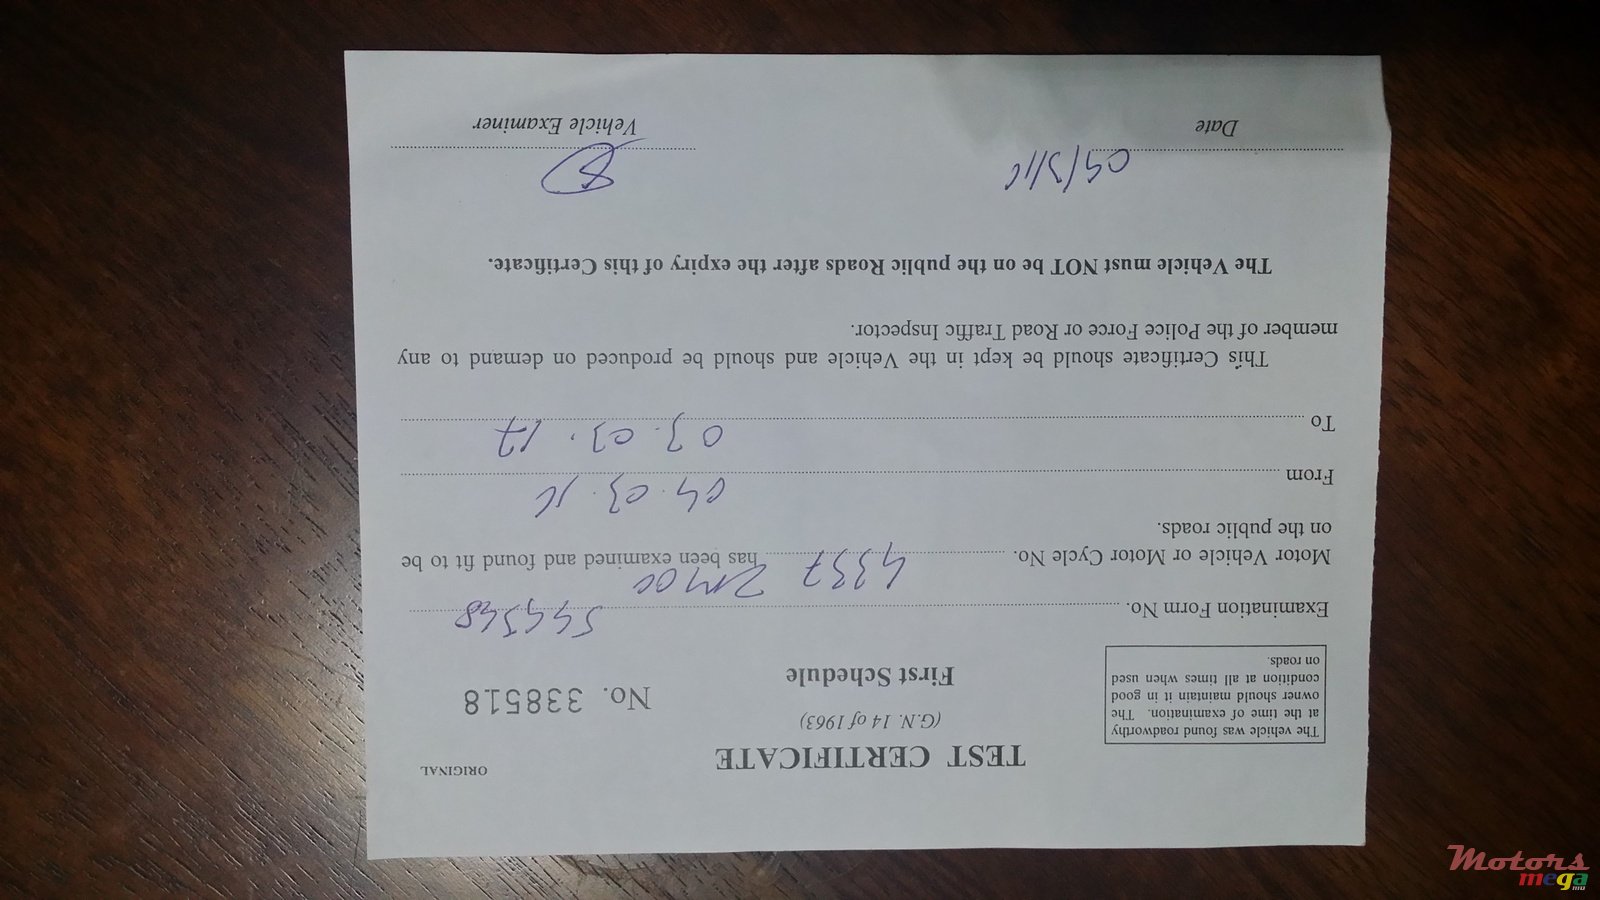 ORIGINAL
TEST CERTIFICATE
(G.N. 14 of 1963)
First Schedule
No. 338518
The vehicle was found roadworthy
at the time of examination. The
owner should maintain it in good
condition at all times when used
on roads.
Examination Form No. 544548
Motor Vehicle or Motor Cycle No. 4337 has been examined and found fit to be
on the public roads.
From 04.03.16
To 03.03.17
This Certificate should be kept in the Vehicle and should be produced on demand to any
member of the Police Force or Road Traffic Inspector.
The Vehicle must NOT be on the public Roads after the expiry of this Certificate.
04/3/16
Date
Vehicle Examiner
Motors
mega
mu